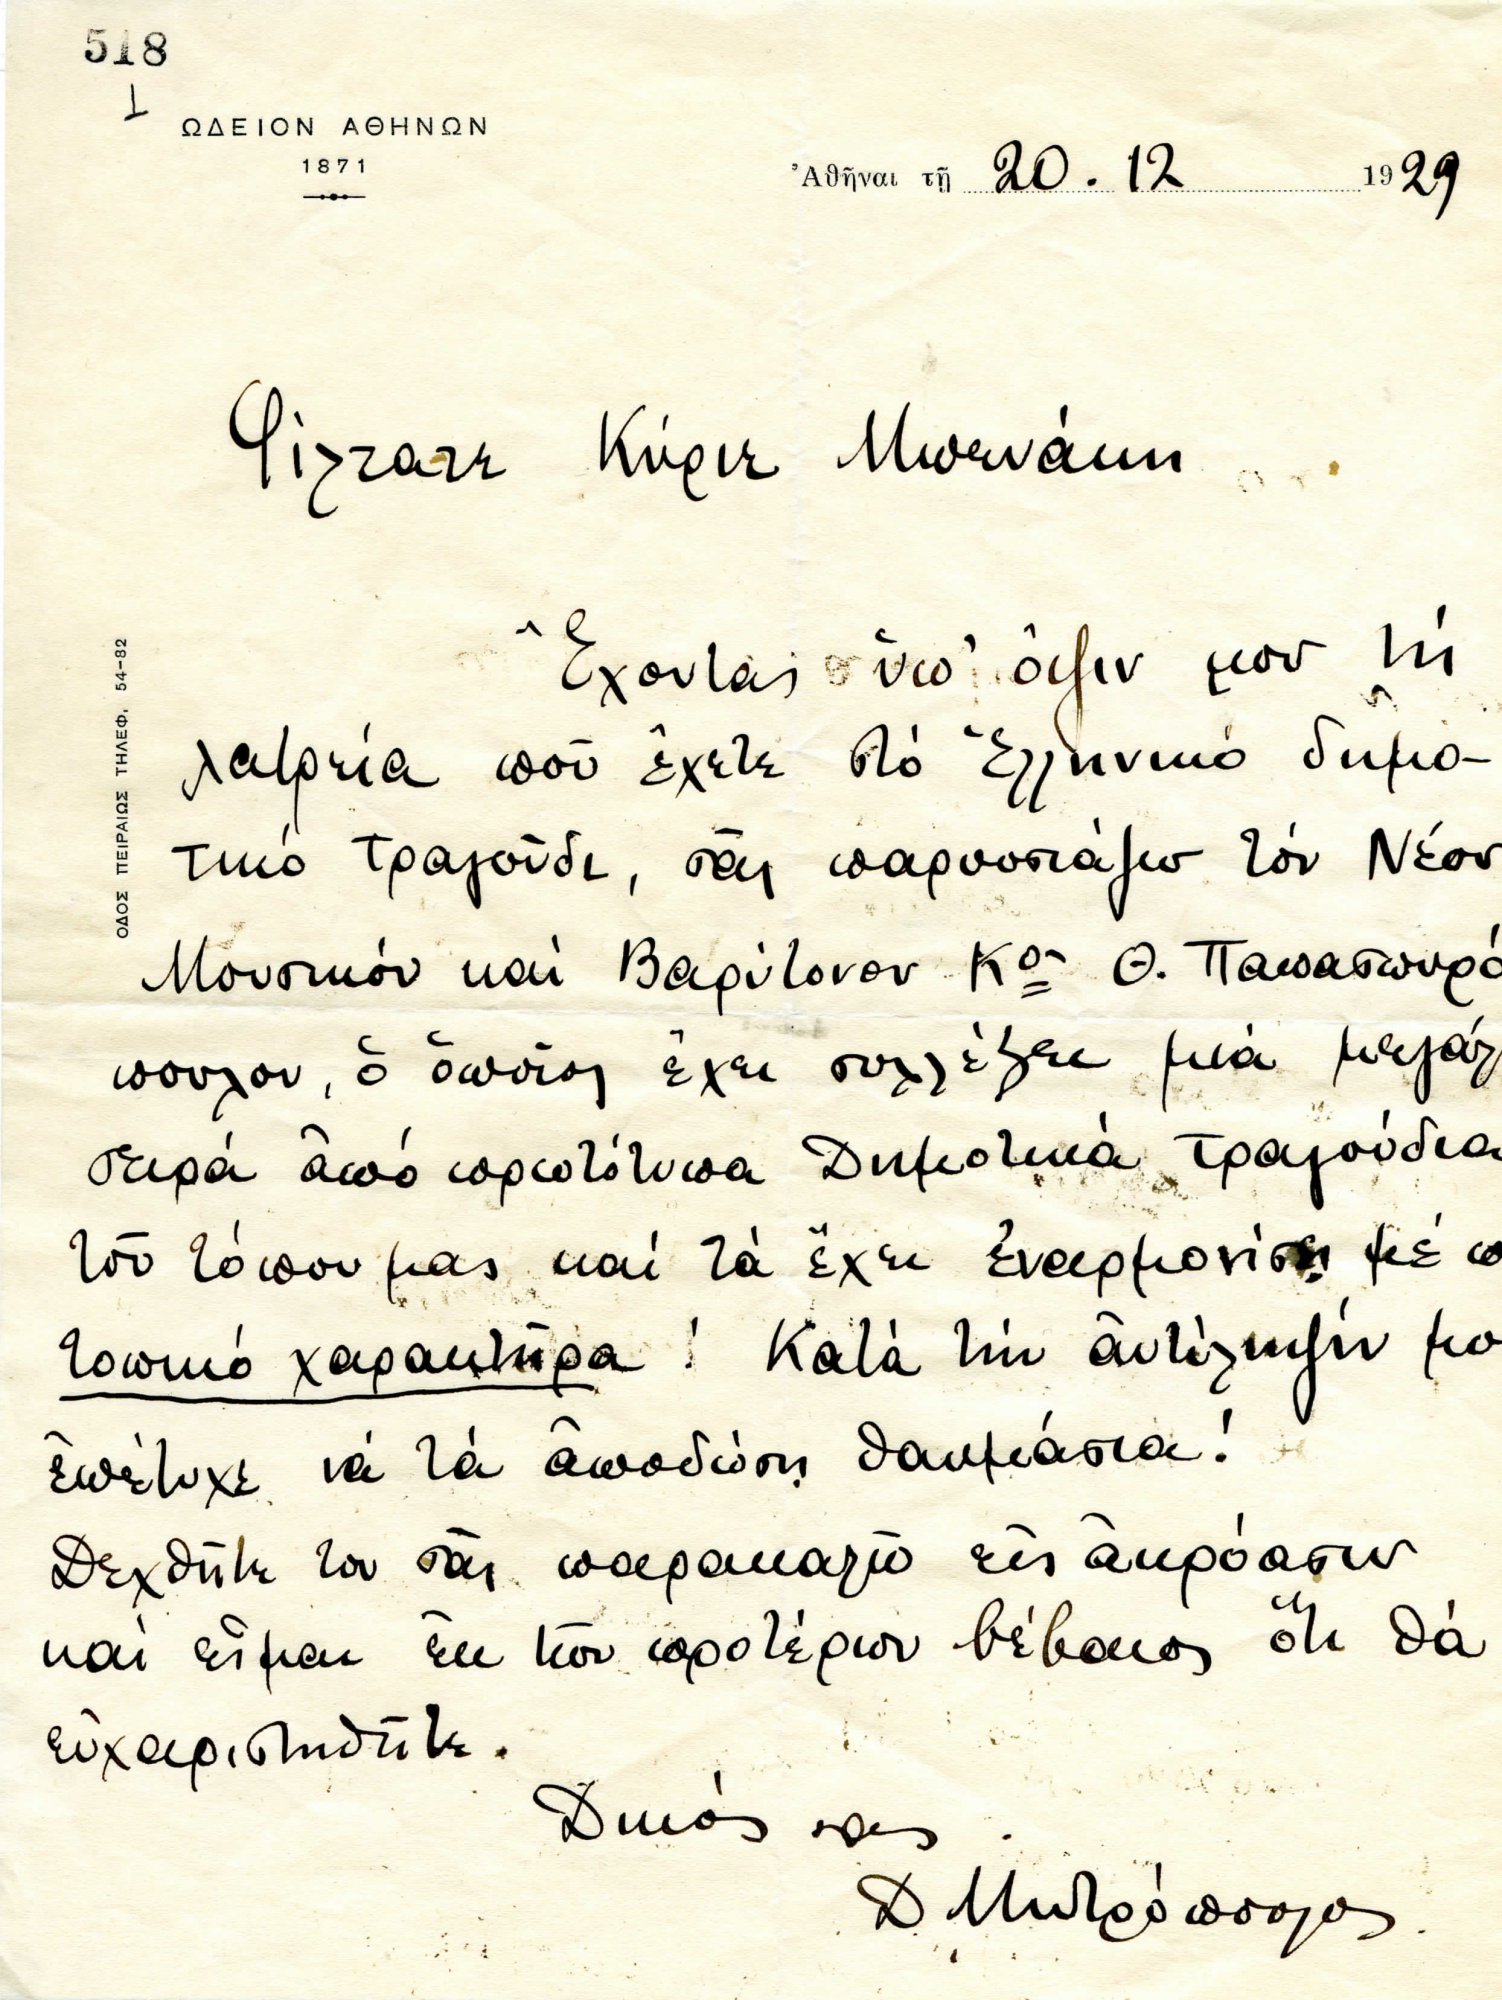 518
1
ΩΔΕΙΟΝ ΑΘΗΝΩΝ
1871
Ἀθῆναι τῇ 20.12 1929
ΟΔΟΣ ΠΕΙΡΑΙΩΣ ΤΗΛΕΦ. 54-82
Φίλτατε Κύριε Μπενάκη
Ἔχοντας ὑπ' ὄψιν μου τή
λατρεία ποῦ ἔχετε στό Ἑλληνικό δημο-
τικό τραγοῦδι, σᾶς παρουσιάζω τόν Νέον
Μουσικόν καί Βαρύτονον Κον Θ. Παπασπυρό
πουλον, ὁ ὁποῖος ἔχει συλλέξει μιά μεγάλ
σειρά ἀπό πρωτότυπα Δημοτικά τραγούδια
τοῦ τόπου μας καί τά ἔχει ἐναρμονίσῃ μέ π
τοπικό χαρακτῆρα! Κατά τήν ἀντίληψίν μο
ἐπέτυχε νά τά ἀποδώσῃ θαυμάσια!
Δεχθῆτε τον σᾶς παρακαλῶ εἰς ἀκρόασιν
καί εἶμαι ἐκ τῶν προτέρων βέβαιος ὅτι θά
εὐχαριστηθῆτε.
Δικός σας
Δ Μητρόπουλος